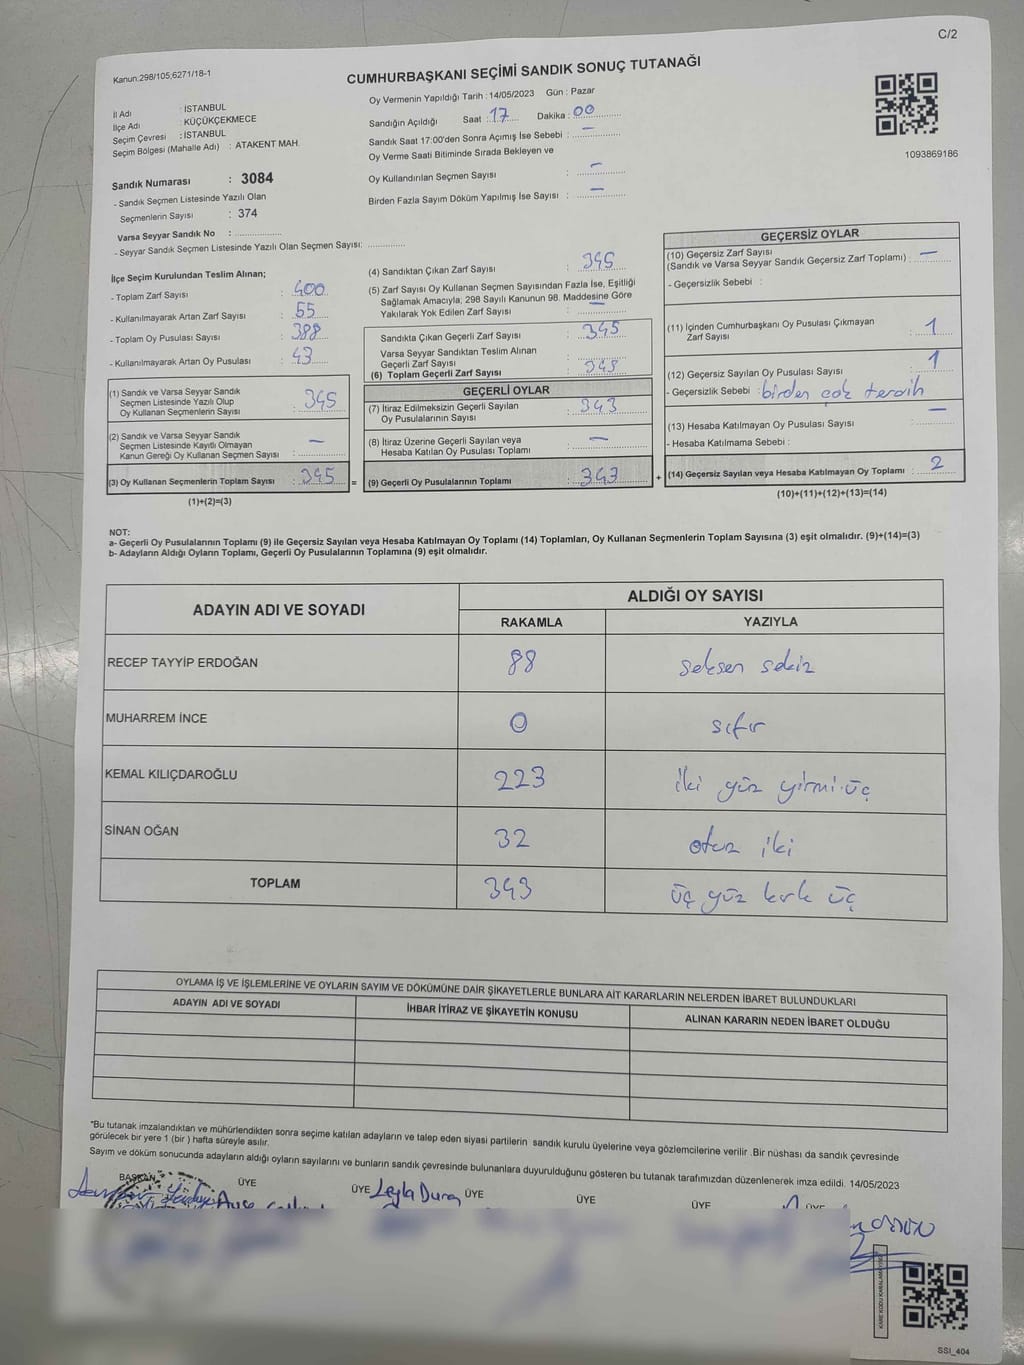 C/2
Kanun:298/105;6271/18-1
CUMHURBAŞKANI SEÇİMİ SANDIK SONUÇ TUTANAĞI
İl Adı : İSTANBUL
İlçe Adı : KÜÇÜKÇEKMECE
Seçim Çevresi : İSTANBUL
Seçim Bölgesi (Mahalle Adı) : ATAKENT MAH.
Oy Vermenin Yapıldığı Tarih : 14/05/2023 Gün : Pazar
Sandığın Açıldığı Saat : 17 Dakika : 00
Sandık Saat 17:00'den Sonra Açımış İse Sebebi : —
Oy Verme Saati Bitiminde Sırada Bekleyen ve
Oy Kullandırılan Seçmen Sayısı : —
Birden Fazla Sayım Döküm Yapılmış İse Sayısı : —
1093869186
Sandık Numarası : 3084
- Sandık Seçmen Listesinde Yazılı Olan
Seçmenlerin Sayısı : 374
Varsa Seyyar Sandık No :
- Seyyar Sandık Seçmen Listesinde Yazılı Olan Seçmen Sayısı:
İlçe Seçim Kurulundan Teslim Alınan;
- Toplam Zarf Sayısı : 400
- Kullanılmayarak Artan Zarf Sayısı : 55
- Toplam Oy Pusulası Sayısı : 388
- Kullanılmayarak Artan Oy Pusulası : 43
(1) Sandık ve Varsa Seyyar Sandık
Seçmen Listesinde Yazılı Olup
Oy Kullanan Seçmenlerin Sayısı : 345
(2) Sandık ve Varsa Seyyar Sandık
Seçmen Listesinde Kayıtlı Olmayan
Kanun Gereği Oy Kullanan Seçmen Sayısı : —
(3) Oy Kullanan Seçmenlerin Toplam Sayısı : 345 =
(1)+(2)=(3)
(4) Sandıktan Çıkan Zarf Sayısı : 345
(5) Zarf Sayısı Oy Kullanan Seçmen Sayısından Fazla İse, Eşitliği
Sağlamak Amacıyla, 298 Sayılı Kanunun 98. Maddesine Göre
Yakılarak Yok Edilen Zarf Sayısı : —
Sandıkta Çıkan Geçerli Zarf Sayısı : 345
Varsa Seyyar Sandıktan Teslim Alınan
Geçerli Zarf Sayısı :
(6) Toplam Geçerli Zarf Sayısı : 345
GEÇERLİ OYLAR
(7) İtiraz Edilmeksizin Geçerli Sayılan
Oy Pusulalarının Sayısı : 343
(8) İtiraz Üzerine Geçerli Sayılan veya
Hesaba Katılan Oy Pusulası Toplamı : —
(9) Geçerli Oy Pusulalarının Toplamı : 343 +
GEÇERSİZ OYLAR
(10) Geçersiz Zarf Sayısı
(Sandık ve Varsa Seyyar Sandık Geçersiz Zarf Toplamı) : —
- Geçersizlik Sebebi :
(11) İçinden Cumhurbaşkanı Oy Pusulası Çıkmayan
Zarf Sayısı : 1
(12) Geçersiz Sayılan Oy Pusulası Sayısı : 1
- Geçersizlik Sebebi : birden çok tercih
(13) Hesaba Katılmayan Oy Pusulası Sayısı : —
- Hesaba Katılmama Sebebi :
(14) Geçersiz Sayılan veya Hesaba Katılmayan Oy Toplamı : 2
(10)+(11)+(12)+(13)=(14)
NOT:
a- Geçerli Oy Pusulalarının Toplamı (9) ile Geçersiz Sayılan veya Hesaba Katılmayan Oy Toplamı (14) Toplamları, Oy Kullanan Seçmenlerin Toplam Sayısına (3) eşit olmalıdır. (9)+(14)=(3)
b- Adayların Aldığı Oyların Toplamı, Geçerli Oy Pusulalarının Toplamına (9) eşit olmalıdır.
ADAYIN ADI VE SOYADI ALDIĞI OY SAYISI
RAKAMLA YAZIYLA
RECEP TAYYİP ERDOĞAN 88 seksen sekiz
MUHARREM İNCE 0 sıfır
KEMAL KILIÇDAROĞLU 223 iki yüz yirmi üç
SİNAN OĞAN 32 otuz iki
TOPLAM 343 üç yüz kırk üç
OYLAMA İŞ VE İŞLEMLERİNE VE OYLARIN SAYIM VE DÖKÜMÜNE DAİR ŞİKAYETLERLE BUNLARA AİT KARARLARIN NELERDEN İBARET BULUNDUKLARI
ADAYIN ADI VE SOYADI İHBAR İTİRAZ VE ŞİKAYETİN KONUSU ALINAN KARARIN NEDEN İBARET OLDUĞU
*Bu tutanak imzalandıktan ve mühürlendikten sonra seçime katılan adayların ve talep eden siyasi partilerin sandık kurulu üyelerine veya gözlemcilerine verilir .Bir nüshası da sandık çevresinde
görülecek bir yere 1 (bir ) hafta süreyle asılır.
Sayım ve döküm sonucunda adayların aldığı oyların sayılarını ve bunların sandık çevresinde bulunanlara duyurulduğunu gösteren bu tutanak tarafımızdan düzenlenerek imza edildi. 14/05/2023
BAŞKAN ÜYE ÜYE ÜYE ÜYE ÜYE ÜYE
Leyla Duran
SSI_404